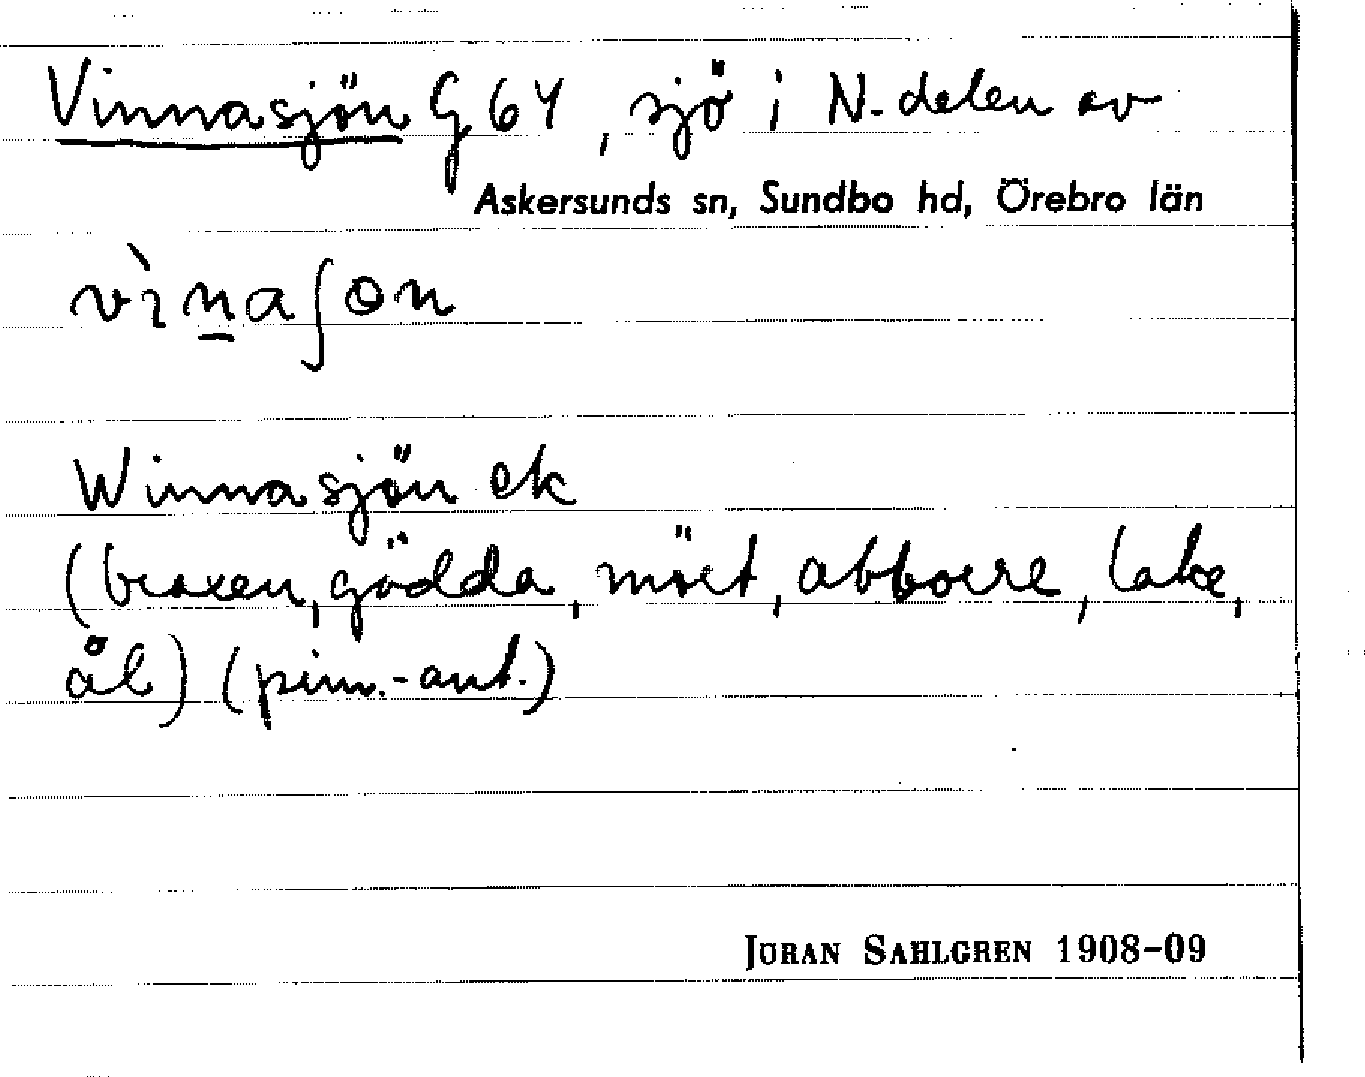 Vinnasjön G 64, sjö i N. delen av
Askersunds sn, Sundbo hd, Örebro län
vìnaʃɵn
Winnasjön ek
(braxen, gädda, mört, abborre, lake,
ål) (prim.-ant.)
JÖRAN SAHLGREN 1908-09